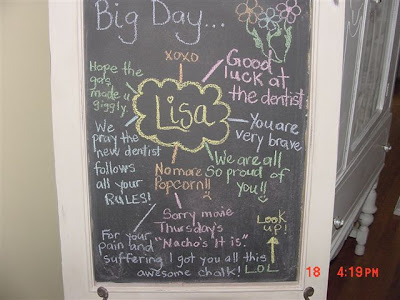 Big Day...
xoxo
Good
luck at
the dentist
Hope the
gas
made u
giggly.
Lisa
You are
very brave
We
pray the
new dentist
follows
all your
RULES!
We are all
so proud of
you!!
No more
Popcorn!!
Sorry movie
Thursday's
"Nacho's it is."
Look
up!
LOL
For your
pain and
suffering I got you all this
awesome chalk!
18 4:19PM